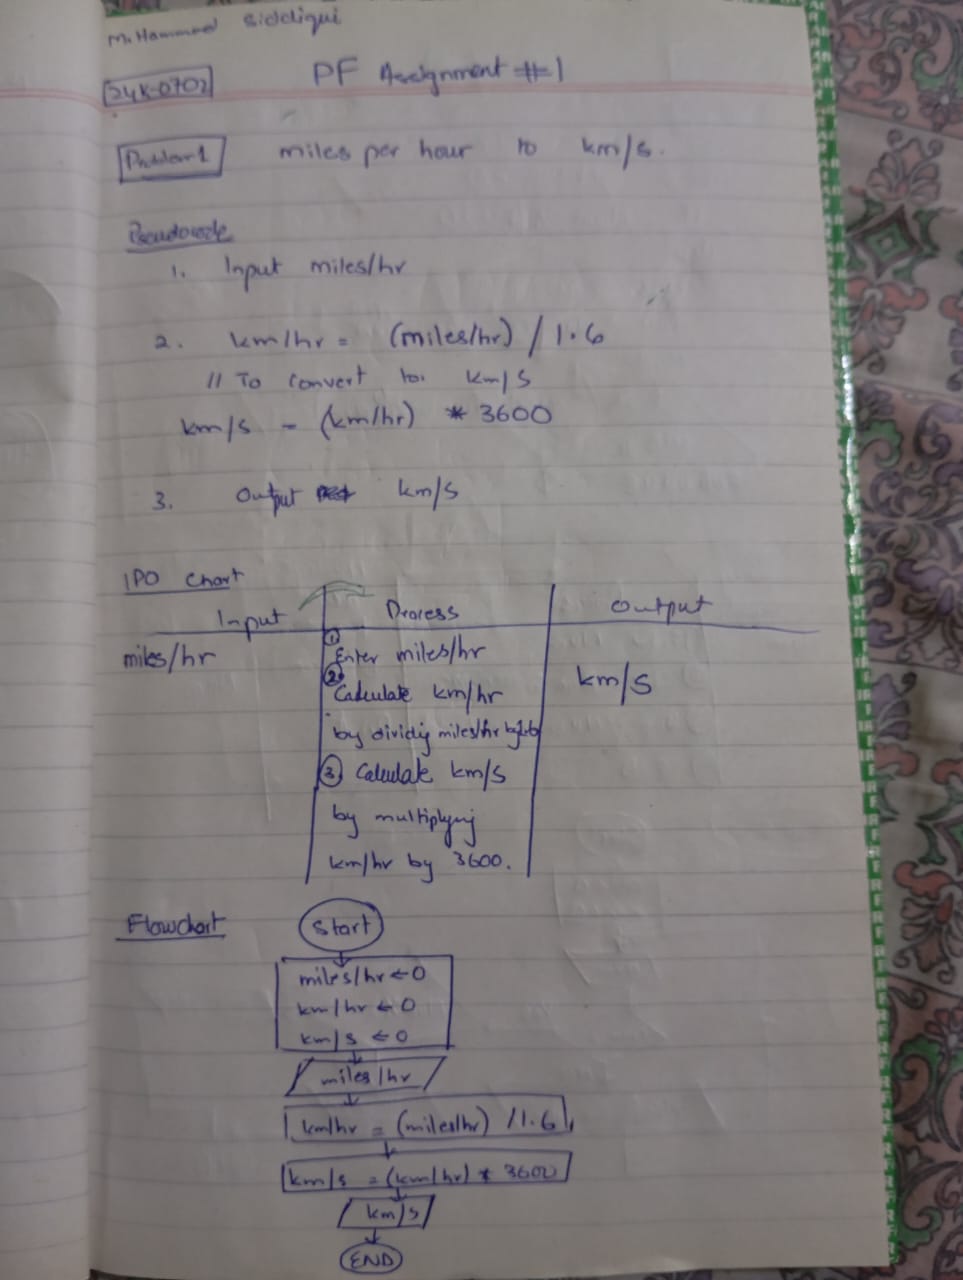 M. Hammad Siddiqui
24K-0702
PF Assignment #1
Problem 1
miles per hour to km/s.
Pseudocode
1. Input miles/hr
2. km/hr = (miles/hr) / 1.6
// To convert to km/s
km/s = (km/hr) * 3600
3. Output km/s
IPO Chart
Input Process Output
miles/hr
① Enter miles/hr
② Calculate km/hr
by dividig miles/hr by 1.6
③ Calculate km/s
by multiplying
km/hr by 3600.
km/s
Flowchart
Start
miles/hr ← 0
km/hr ← 0
km/s ← 0
miles/hr
km/hr = (miles/hr) / 1.6
km/s = (km/hr) * 3600
km/s
END